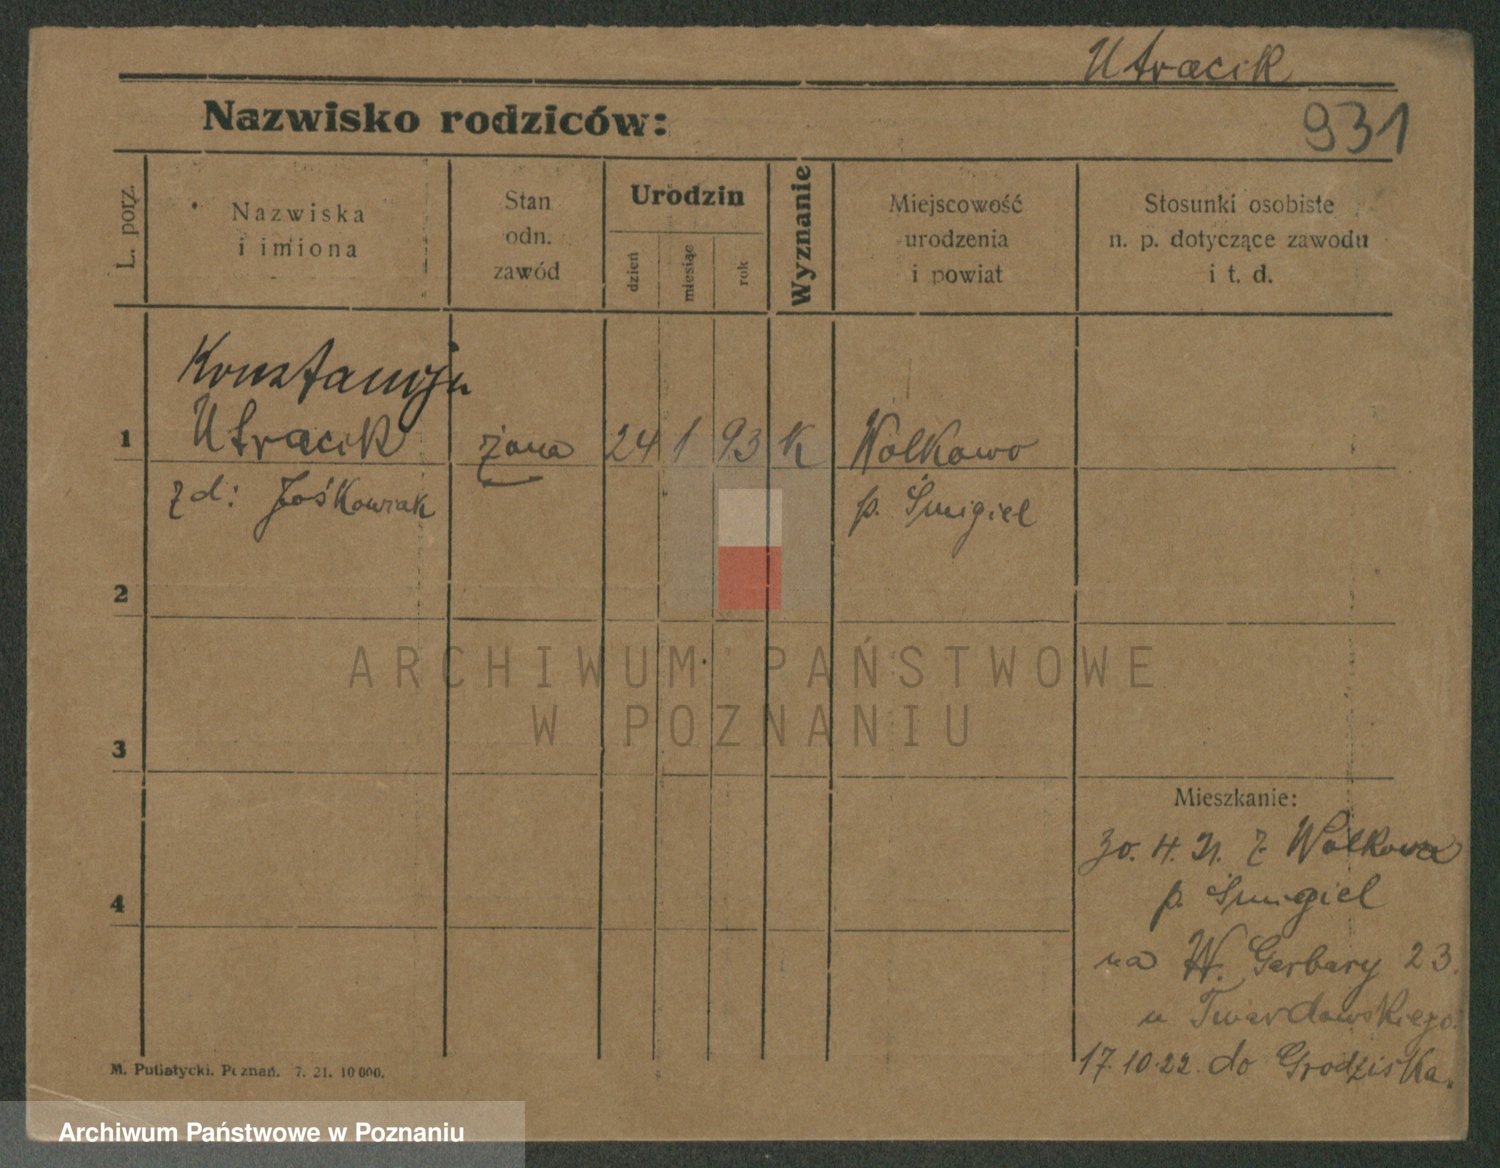 Utracik
Nazwisko rodziców:
931
L. porz.
Nazwiska
i imiona
Stan
odn.
zawód
Urodzin
dzień
miesiąc
rok
Wyznanie
Miejscowość
urodzenia
i powiat
Stosunki osobiste
n. p. dotyczące zawodu
i t. d.
Konstancja
1 Utracik żona 24 1 93 K Wolkowo
zd: Jośkowiak p. Śmigiel
2
3
4
Mieszkanie:
30. H. 21. z Wolkowa
p. Śmigiel
na W. Garbary 23.
u Twardowskiego.
17.10.22. do Grodziska.
M. Putiatycki. Poznań. 7. 21. 10 000.
ARCHIWUM PAŃSTWOWE
W POZNANIU
Archiwum Państwowe w Poznaniu